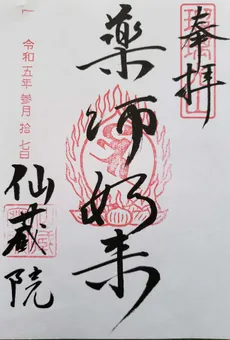 奉拝
薬师如来
令和五年参月拾七日
仙蔵院